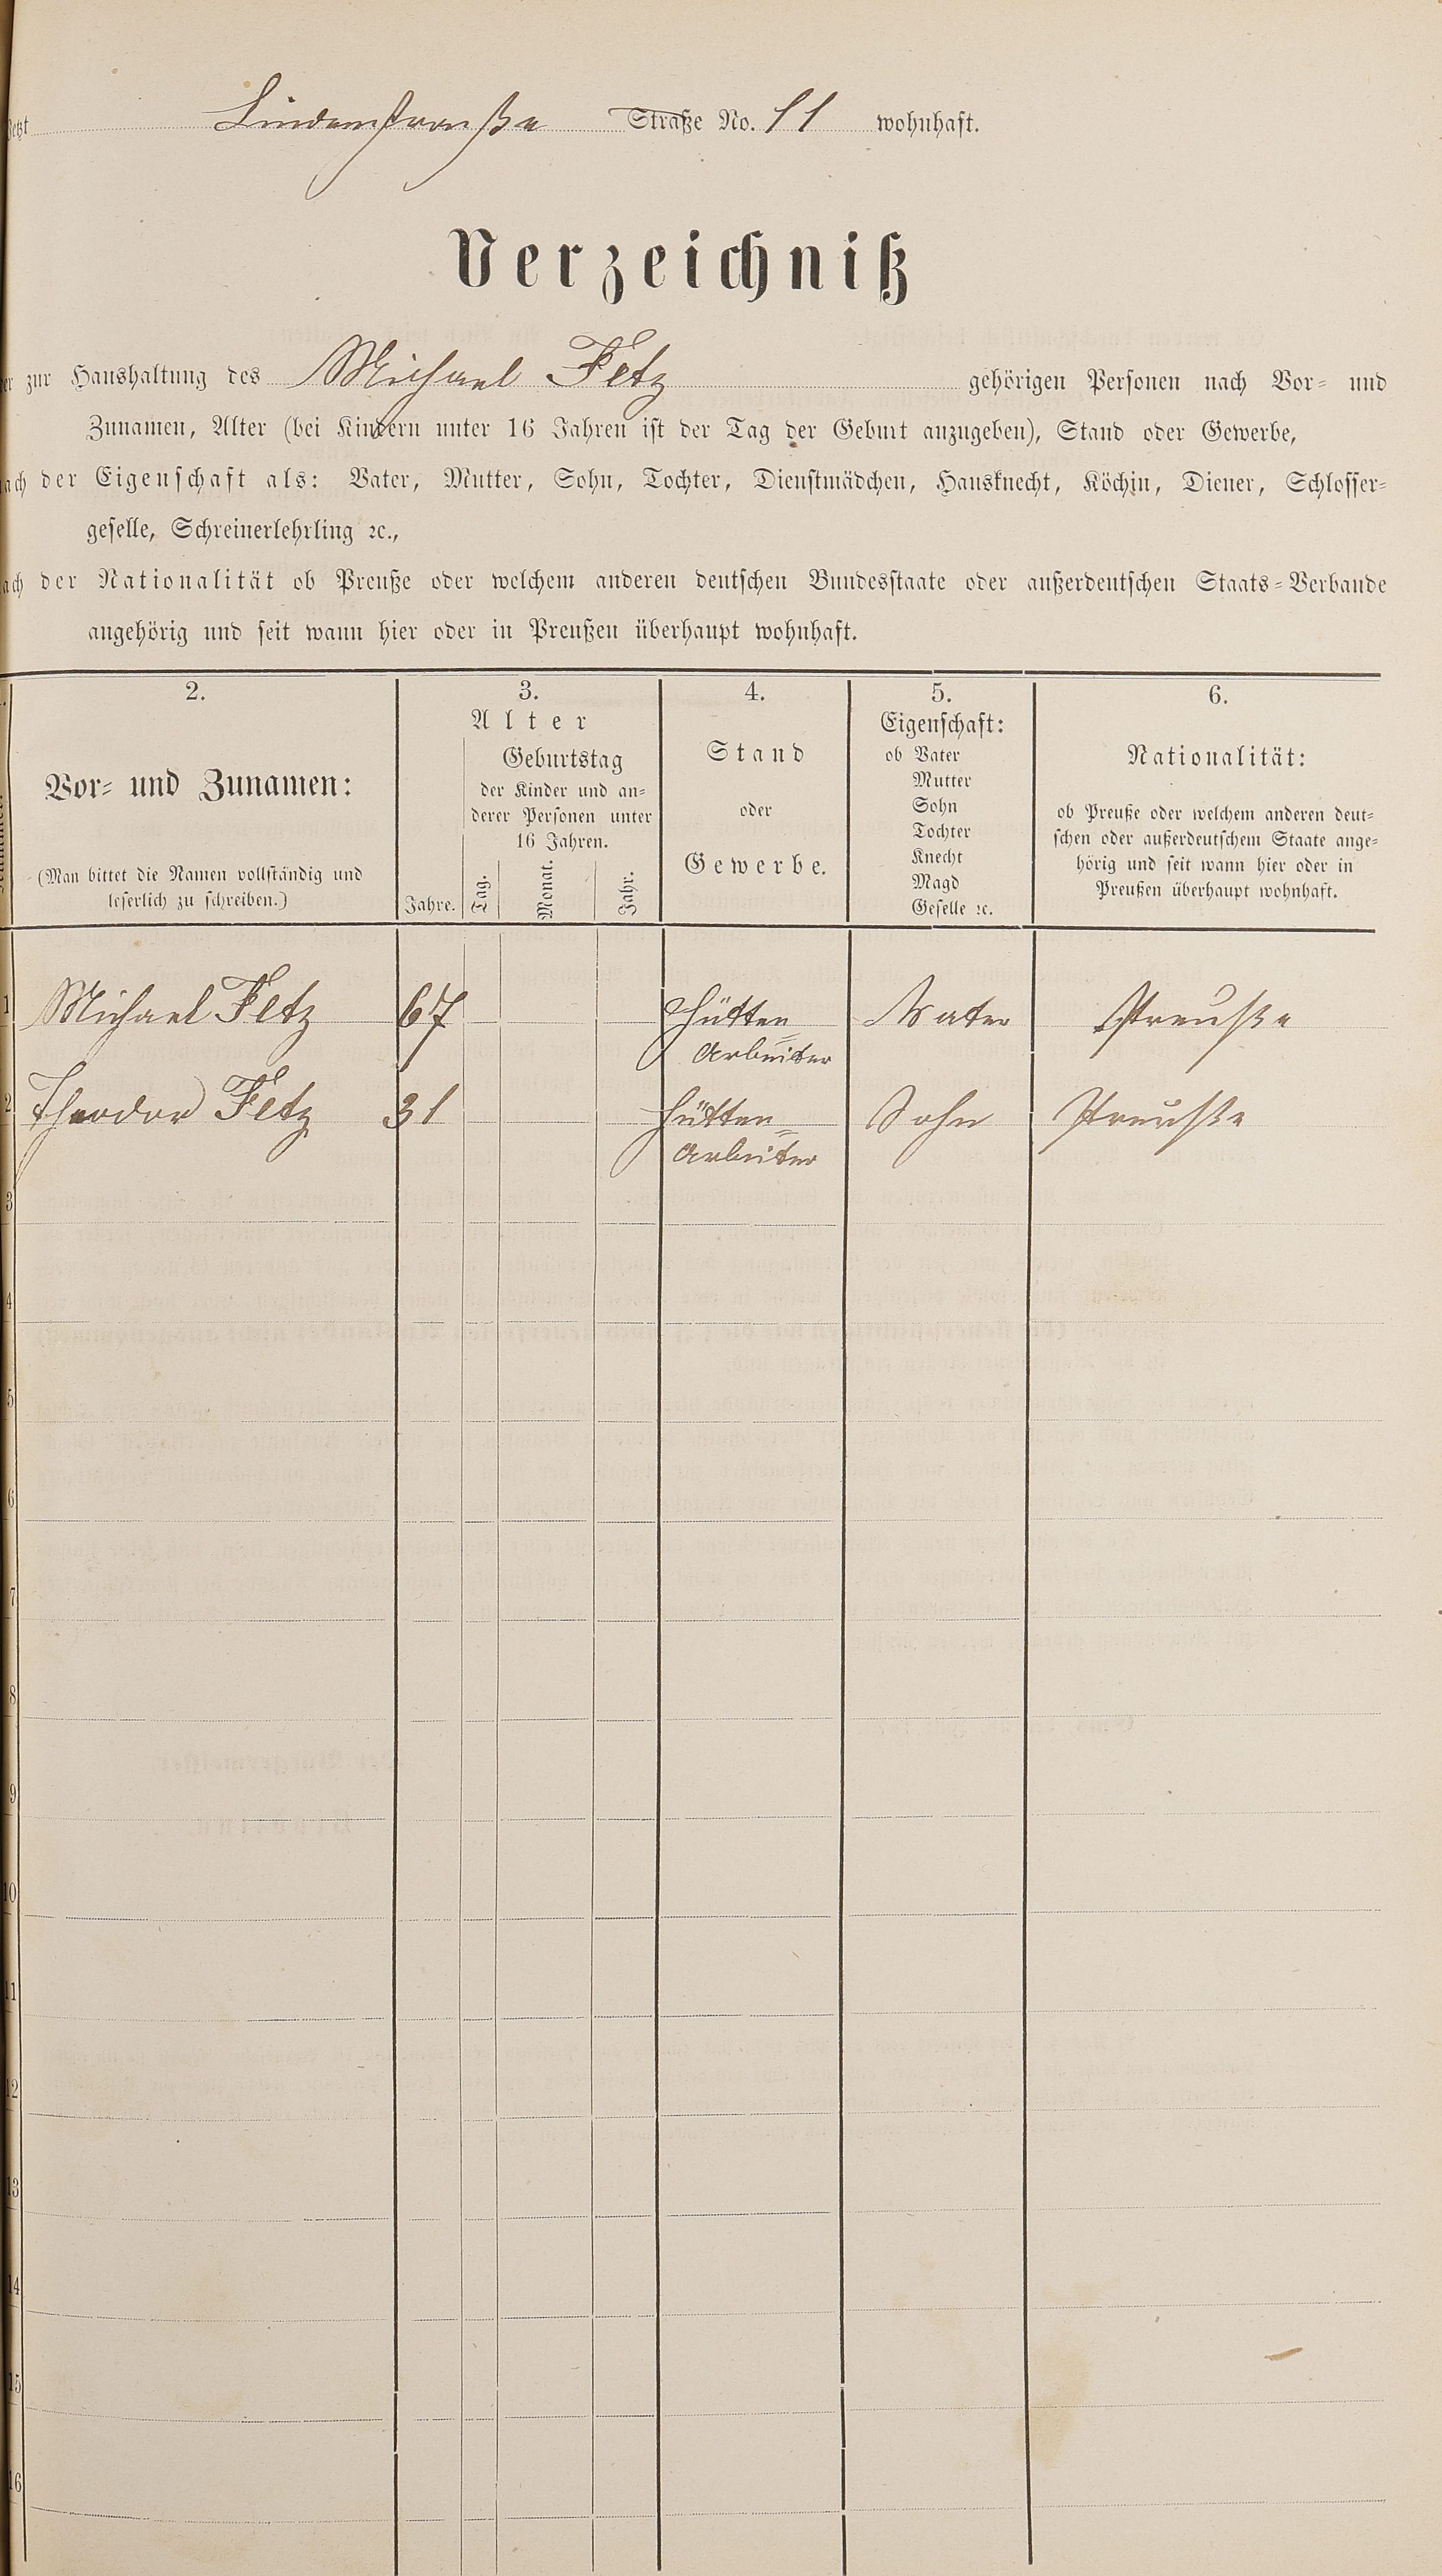 jetzt Lindenstraße Straße No. 11 wohnhaft.
Verzeichniß
der zur Haushaltung des Michael Fetz gehörigen Personen nach Vor- und
Zunamen, Alter (bei Kindern unter 16 Jahren ist der Tag der Geburt anzugeben), Stand oder Gewerbe,
nach der Eigenschaft als: Vater, Mutter, Sohn, Tochter, Dienstmädchen, Hausknecht, Köchin, Diener, Schlosser-
geselle, Schreinerlehrling ꝛc.,
nach der Nationalität ob Preuße oder welchem anderen deutschen Bundesstaate oder außerdeutschen Staats-Verbande
angehörig und seit wann hier oder in Preußen überhaupt wohnhaft.
2.
Vor- und Zunamen:
(Man bittet die Namen vollständig und
leserlich zu schreiben.)
3.
Alter
Jahre.
Geburtstag
der Kinder und an-
derer Personen unter
16 Jahren.
Tag.
Monat.
Jahr.
4.
Stand
oder
Gewerbe.
5.
Eigenschaft:
ob Vater
Mutter
Sohn
Tochter
Knecht
Magd
Geselle ꝛc.
6.
Nationalität:
ob Preuße oder welchem anderen deut-
schen oder außerdeutschem Staate ange-
hörig und seit wann hier oder in
Preußen überhaupt wohnhaft.
1 Michael Fetz 67 Hütten Vater Preuße
Arbeiter
2 Theodor Fetz 31 Hütten= Sohn Preuße
Arbeiter
3
4
5
6
7
8
9
10
11
12
13
14
15
16